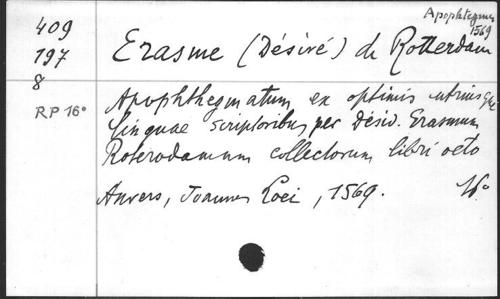 Apophtegmes
1569
409
197
8
RP 16°
Erasme (Désiré) de Rotterdam
Apophthegmatum ex optimis utriusque
linguae scriptoribus per Désid. Erasmum
Roterodamum collectorum libri octo
Anvers, Joannes Loei, 1569. 16°